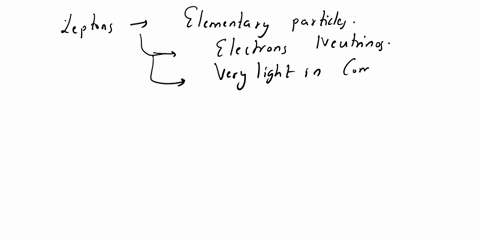 Leptons → Elementary particles.
Electrons Neutrinos.
Very light in Com